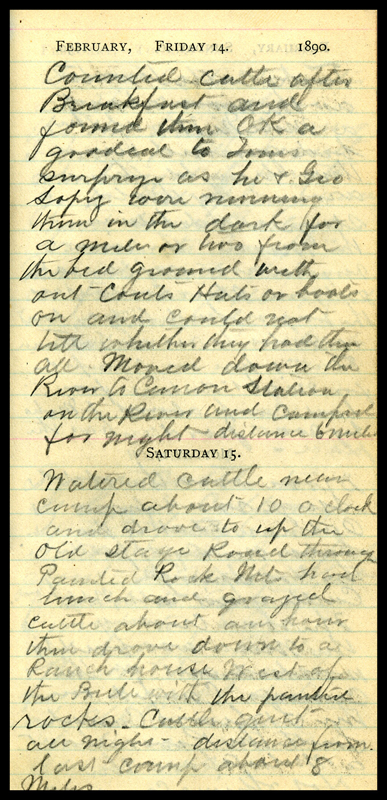 FEBRUARY, FRIDAY 14. 1890.
Counted cattle after
Breakfast and
found them OK a
goodeal to Toms
surprize as he & Geo
were running
them in the dark for
a mile or two from
the bed ground with
out Coats Hats or boots
on and could not
tell whether they had them
all. Moved down the
River to Canon Station
on the River and Camped
for night distance 6 miles
SATURDAY 15.
Watered cattle near
camp about 10 o clock
and drove to up the
Old stage Road through
Painted Rock Mts had
lunch and grazed
cattle about an hour
then drove down to a
Ranch house West of
the Bute with the painted
rocks. Cattle quiet
all night - distance from
last camp about 8
Miles